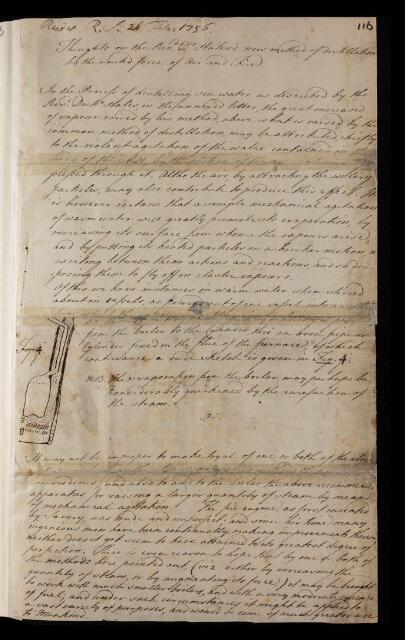 Read R. S. 26 Feb. 1756.
116
Thoughts on the Revd. Dr. Hales's new method of distillation
by the united force of Air and Fire.
In the Process of distilling sea water as described by the
Revd. Doctr. Hales, in the letter, the great increase
of vapour raised by his method, above what is raised by the
common method of distillation, may be attributed chiefly
to the violent agitation of the water contained
pressed through it. Altho the air, by attracting the watery
particles, may also contribute to produce this effect. It
is however certain that a simple mechanical agitation
of warm water will greatly promote its evaporation, by
increasing its surface from whence the vapours arise,
and by putting its heated particles in a brisker motion &
exciting between them actions and reactions, and so dis-
posing them to fly off in elastic vapours.
Of this we have instances in warm water when stirred
about in vessels, or poured out of one vessel into
from the boiler to the Cylinder, thro' an broad pipe or
Cylinder fixed in the flue of the furnace, of which
contrivance a rude sketch is given in Fig. 4.
Fig. 4
N.B. The evaporation from the boiler may perhaps be
considerably quickened by the rarefaction of
the steam.
It may not be improper to make tryal of one or both of the
contrivances, and also to add to the boiler the above
apparatus for raising a larger quantity of steam by means
of mechanical agitation. The fire engine as first invented
by Savery, was rude and imperfect, and since his time many
ingenious men have been continually making improvements therein,
neither does it yet seem to have attained to its greatest degree of
perfection. There is even reason to hope that by one or both of
the methods here pointed out (viz. either by increasing the
quantity of steam, or by augmenting its force) it may be brought
to work with much smaller boilers, and with a very moderate expence
of fuel, and under such circumstances it might be applied to
a vast variety of purposes, and would be come of much greater use
to Mankind.